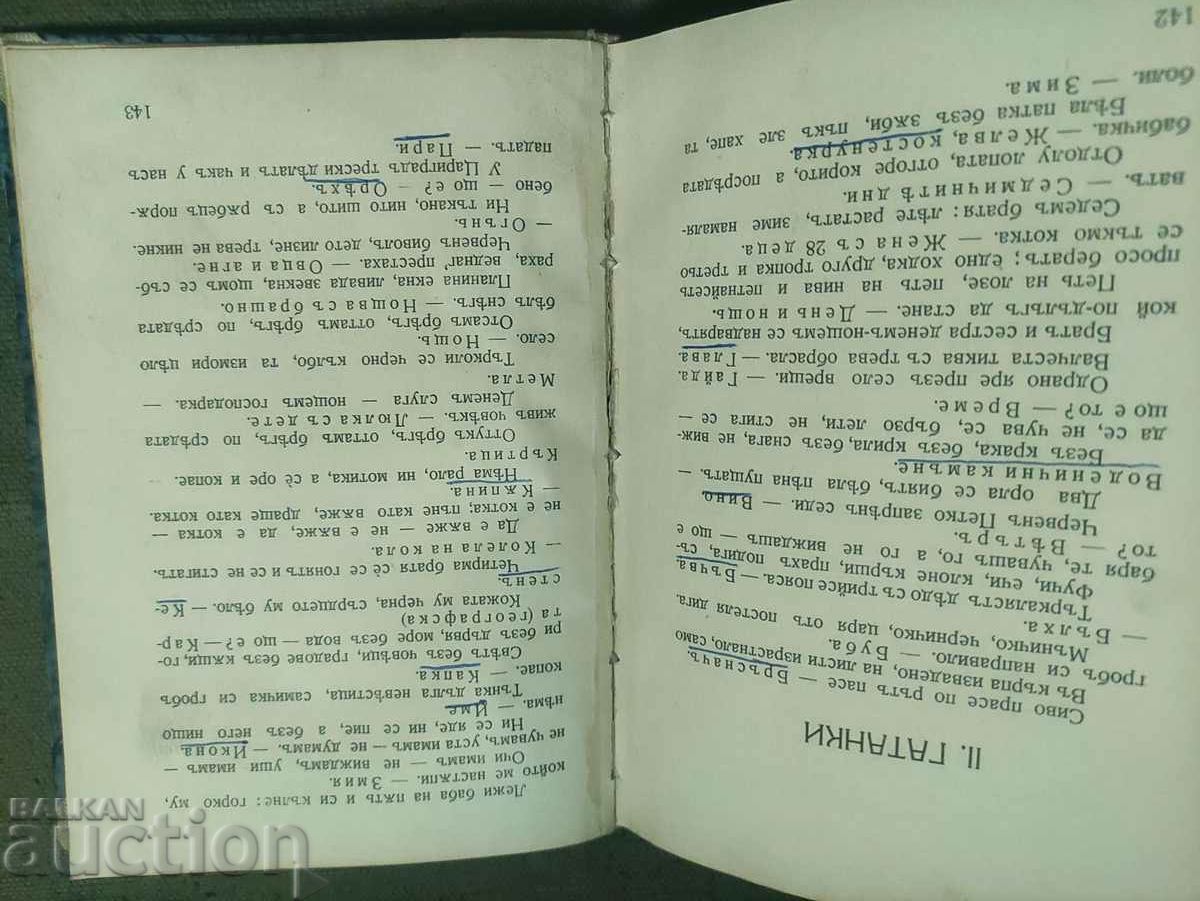 142
II. ГАТАНКИ
Сиво прасе по рътъ пасе — Бръсначъ.
Въ кърпа извадено, на листи израстнало, само
гробъ си направило. — Буба.
Мъничко, черничко, царя отъ постеля дига.
— Бълха.
Търкалястъ дѣдо съ трийсе пояса. — Бъчва.
Фучи, ечи, клоне кърши, прахъ подига, съ-
баря те, чувашъ го, а го не виждашъ — що е
то? — Вѣтъръ.
Червенъ Петко запрѣнъ седи. — Вино.
Два орла се биятъ, бѣла пѣна пущатъ. —
Воденични камъне.
Безъ крака, безъ крила, безъ снага, не виж-
да се, не чува се, бързо лети, не стига се —
що е то? — Време.
Одрано яре презъ село врещи. — Гайда.
Валчеста тиква съ трева обрасла. — Глава.
Братъ и сестра денемъ-нощемъ се надварятъ,
кой по-дългъ да стане. — День и нощь.
Петь на лозе, петь на нива и петнайсеть
просо бератъ; едно ходка, друго тропка и третьо
се тъкмо котка. — Жена съ 28 деца.
Седемъ братя: лѣте растатъ, зиме намаля-
ватъ. — Седмичнитѣ дни.
Отдолу лопата, отгоре корито, а посрѣдата
бабичка. — Желва, костенурка.
Бѣла патка безъ зѫби, пъкъ зле хапе, та
боли. — Зима.
Лежи баба на пѫть и си кълне: горко му,
който ме настѫпи. — Змия.
Очи имамъ — не виждамъ, уши имамъ —
не чувамъ, уста имамъ — не думамъ. — Икона.
Ни се яде, ни се пие, а безъ него нищо
нѣма. — Име.
Тънка дълга невѣстица, самичка си гробъ
копае. — Капка.
Свѣтъ безъ човѣци, градове безъ кѫщи, го-
ри безъ дървя, море безъ вода — що е? — Кар-
та (географска)
Кожата му черна, сърдцето му бѣло. — Ке-
стенъ
Четирма братя сѐ се гонятъ и се не стигатъ.
— Колела на кола.
Да е вѫже — не е вѫже, да е котка —
не е котка; пъне като вѫже, драще като котка.
— Кѫпина.
Нѣма рало, ни мотика, а сѐ оре и копае.
Къртица.
Оттукъ брѣгъ, оттамъ брѣгъ, по срѣдата
живъ човѣкъ. — Люлка съ дете.
Денемъ слуга — нощемъ господарка. —
Метла.
Търколи се черно кълбо, та измори цѣло
село. — Нощь.
Отсамъ брѣгъ, оттамъ брѣгъ, по срѣдата
бѣлъ снѣгъ. — Нощва съ брашно.
Планина екна, ливада звекна, щомъ се събъ-
раха, веднаг' престаха. — Овца и агне.
Червенъ биволъ, дето лизне, трева не никне.
— Огънь.
Ни тъкано, нито шито, а съ рѫбецъ порѫ-
бено — що е? — Орѣхъ.
У Цариградъ трески дѣлатъ и чакъ и у насъ
падатъ. — Пари.
143
BALKAN
auction